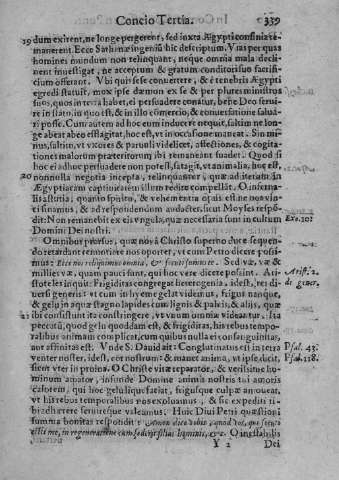 Concio Tertia. 339
19 dum exirent, ne longe pergerent, sed iuxta Ægypti confinia re-
manerent. Ecce Sathanæ ingeniũ hic descriptum. Vias per quas
homines mundum non relinquant, neque omnia mala decli-
nent inuestigat, ne acceptum & gratum conditori suo sacrifi-
cium offerant. Vbi quis sese conuertere, & è tenebris Ægypti
egredi statuit, mox ipse dæmon ex se & per plures ministros
suos, quos in terra habet, ei persuadere conatur, bene Deo serui-
re in statu, in quo est, & in illo cõmercio, & conuersatione salua-
ri posse. Cum autem ad hoc eum inducere nequit, saltim ne lon-
ge abeat abeo efflagitat, hoc est, vt in occasione maneat. Sin mi-
nus, saltim, vt vxores & paruuli videlicet, affectiones, & cogita-
tiones malorum præteritorum ibi remaneant suadet. Quod si
hoc ei adhoc persuadere non potest, satagit, vt animalia, hoc est,
20 nonnulla negotia incepta, relinquantur, quæ ad iterum in
Ægyptiacam captiuitatem illum redire compellãt. O inferna-
lis astutia; quanto spiritu, & vehementia opus est ne nos vin-
ci sinamus, & ad respõdendũ audacter, sicut Moyses respõ-
dit: Non remanebit ex eis vngula, quæ necessaria sunt in cultum
Exo. 10:
Domini Dei nostri.
Omnibus prorsus, quæ nos à Christo superno duce sequen-
do retardant remouere nos oportet, vt cum Petro dicere possi-
mus: Ecce nos relinquimus omnia, & secuti sumus te. Sed væ, væ &
millies væ, quam pauci sunt, qui hoc vere dicere possint. Ari-
Arist. 2.
stoteles inquit: Frigiditas congregat heterogenia, idest, res di-
de gener,
uersi generis: vt cum in hyeme gelat videmus, frigus nanque,
& gelu in aquæ stagno lapides cum lignis & paleis, & alijs, quæ
21 ibi consistunt ita constringere, vt vnum omnia videatur. Ita
peccatũ, quod gelu quoddam est, & frigiditas, his rebus tempo-
ralibus animam complicat, cum quibus nulla ei consanguinitas,
aut affinitas est. Vnde S. Dauid ait: Conglutinatus est in terra
Psal. 43.
venter noster, idest, cor nostrum: & manet anima, vt ipse dicit,
Psal. 118.
sicut vter in pruina. O Christe vitæ reparator, & verissime ho-
minum amator, infunde Domine animis nostris tui amoris
calorem, qui hoc gelu liquefaciat, frigusque culpæ amoueat,
vt his rebus temporalibus nos exoluamus, & sic expediti ti-
bi adhærere seruireque valeamus. Huic Diui Petri quæstioni
summa bonitas respondit: Amen dico vobis, quod vos, qui secuti
estis me, in regeneratione cum sederit filius hominis, &c. O ineffabilis
Y 2 Dei